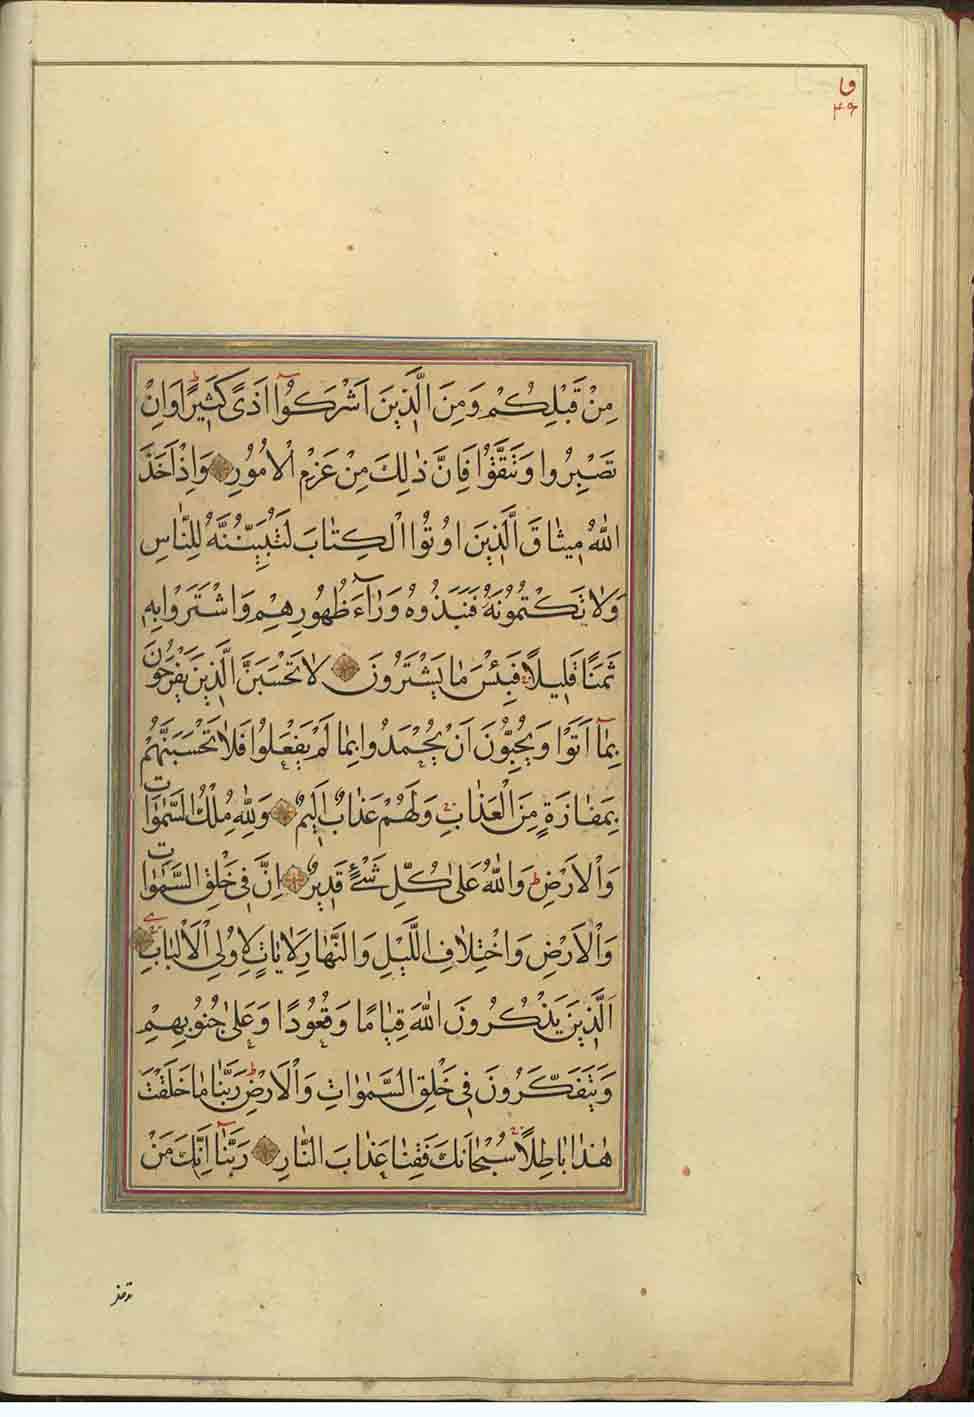 مِنْ قَبْلِكُمْ وَمِنَ الَّذِينَ اَشْرَكُوٓا اَذًى كَثِيرًا وَاِنْ
تَصْبِرُوا وَتَتَّقُوْا فَاِنَّ ذٰلِكَ مِنْ عَزْمِ الْاُمُورِ وَاِذْ اَخَذَ
اللّٰهُ مِيثَاقَ الَّذِينَ اُوتُوا الْكِتَابَ لَتُبَيِّنُنَّهُ لِلنَّاسِ
وَلَا تَكْتُمُونَهُ فَنَبَذُوهُ وَرَآءَ ظُهُورِهِمْ وَاشْتَرَوْا بِهِ
ثَمَنًا قَلِيلًا فَبِئْسَ مَا يَشْتَرُونَ لَا تَحْسَبَنَّ الَّذِينَ يَفْرَحُونَ
بِمَآ اَتَوْا وَيُحِبُّونَ اَنْ يُحْمَدُوا بِمَا لَمْ يَفْعَلُوا فَلَا تَحْسَبَنَّهُمْ
بِمَفَازَةٍ مِنَ الْعَذَابِ وَلَهُمْ عَذَابٌ اَلِيمٌ وَلِلّٰهِ مُلْكُ السَّمٰوَاتِ
وَالْاَرْضِ وَاللّٰهُ عَلٰى كُلِّ شَيْءٍ قَدِيرٌ اِنَّ فِي خَلْقِ السَّمٰوَاتِ
وَالْاَرْضِ وَاخْتِلَافِ اللَّيْلِ وَالنَّهَارِ لَاٰيَاتٍ لِاُولِي الْاَلْبَابِ
اَلَّذِينَ يَذْكُرُونَ اللّٰهَ قِيَامًا وَقُعُودًا وَعَلٰى جُنُوبِهِمْ
وَيَتَفَكَّرُونَ فِي خَلْقِ السَّمٰوَاتِ وَالْاَرْضِ رَبَّنَا مَا خَلَقْتَ
هٰذَا بَاطِلًا سُبْحَانَكَ فَقِنَا عَذَابَ النَّارِ رَبَّنَآ اِنَّكَ مَنْ